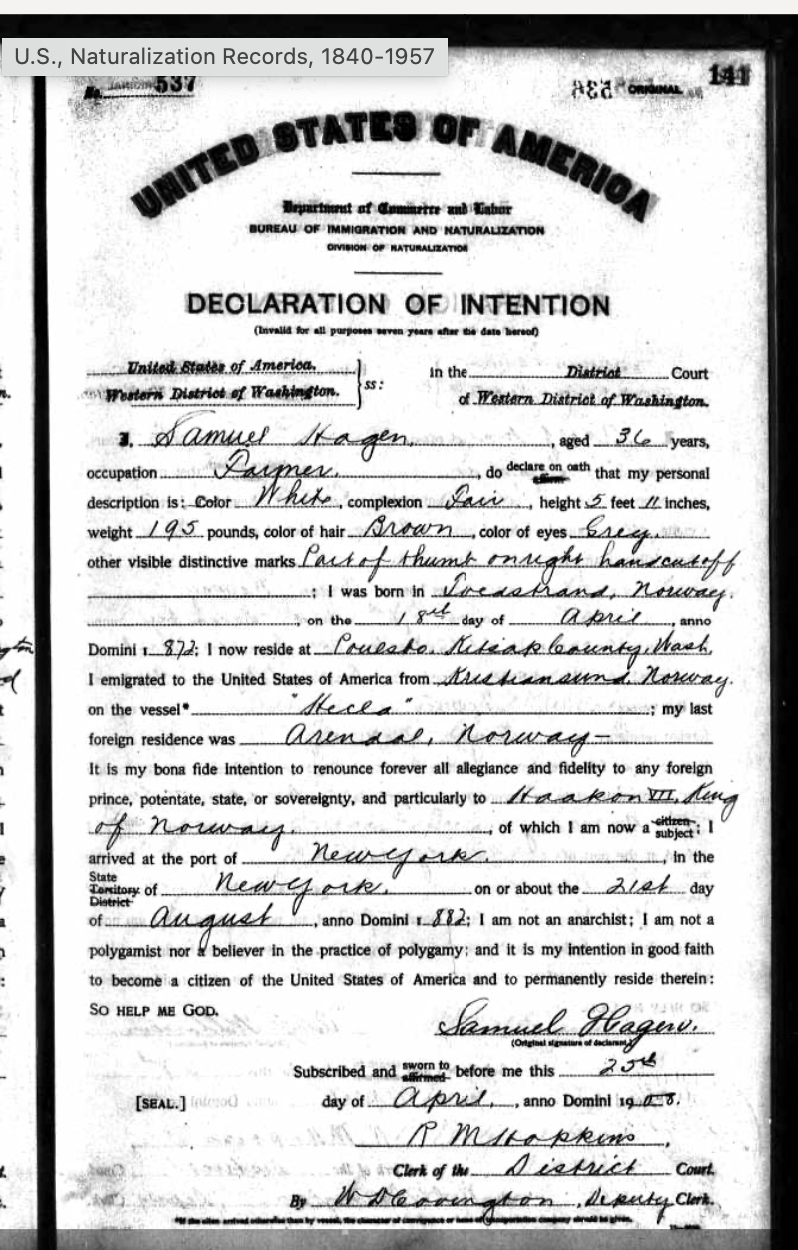 U.S., Naturalization Records, 1840-1957
No. 537
ORIGINAL 141
UNITED STATES OF AMERICA
Department of Commerce and Labor
BUREAU OF IMMIGRATION AND NATURALIZATION
DIVISION OF NATURALIZATION
DECLARATION OF INTENTION
(Invalid for all purposes seven years after the date hereof)
United States of America. In the District Court
Western District of Washington. ss: of Western District of Washington.
I, Samuel Hagen, aged 36 years,
occupation Farmer, do declare on oath affirm that my personal
description is: Color White, complexion Fair, height 5 feet 11 inches,
weight 195 pounds, color of hair Brown, color of eyes Grey.
other visible distinctive marks Part of thumb on right hand cut off
; I was born in Tvedestrand, Norway.
, on the 18th day of April, anno
Domini 1 872; I now reside at Poulsbo, Kitsap County, Wash.
I emigrated to the United States of America from Kristiansund, Norway.
on the vessel* "Hecla"; my last
foreign residence was Arendal, Norway-
It is my bona fide intention to renounce forever all allegiance and fidelity to any foreign
prince, potentate, state, or sovereignty, and particularly to Haakon VII, King
of Norway., of which I am now a citizen subject; I
arrived at the port of New York., in the
State Territory District of New York. on or about the 21st day
of August, anno Domini 1 882; I am not an anarchist; I am not a
polygamist nor a believer in the practice of polygamy; and it is my intention in good faith
to become a citizen of the United States of America and to permanently reside therein:
SO HELP ME GOD.
Samuel Hagen.
(Original signature of declarant.)
Subscribed and sworn to affirmed before me this 25th
[SEAL.] day of April, anno Domini 1908.
R M Hopkins,
Clerk of the District Court.
By W D Covington, Deputy Clerk.
*If the alien arrived otherwise than by vessel, the character of conveyance or name of transportation company should be given.